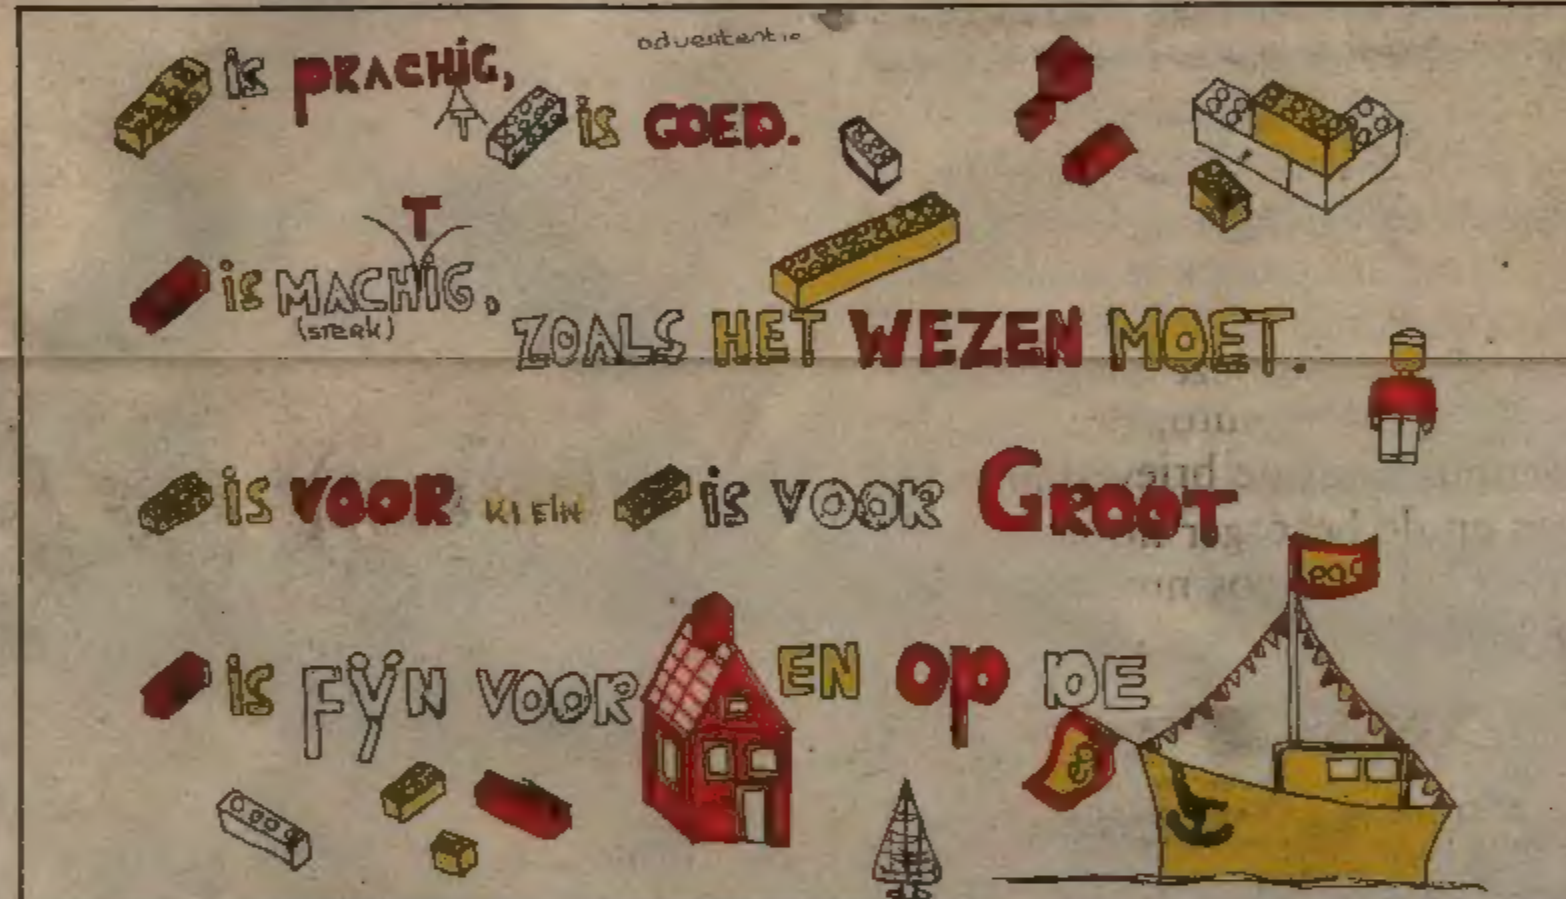 advertentie
is PRACHIG,
T
is GOED.
T
is MACHIG,
(STERK)
ZOALS HET WEZEN MOET.
is VOOR KLEIN is VOOR GROOT
is FÿN VOOR EN OP DE